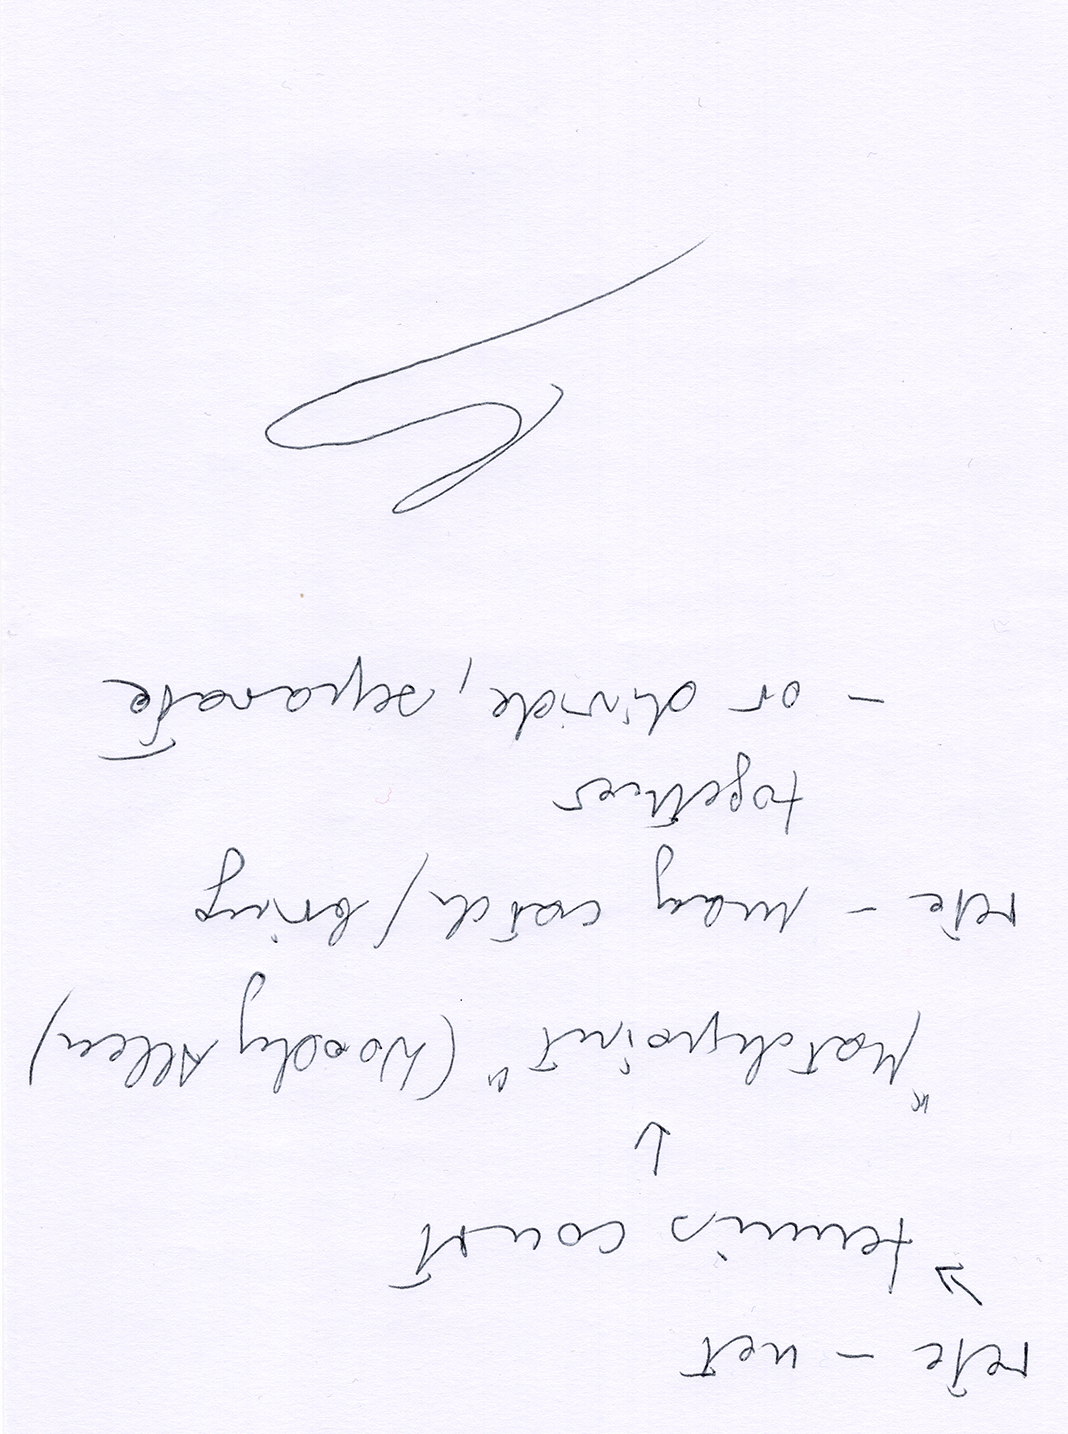 rete – net
↘ tennis court
↓
"Matchpoint" (Woody Allen)
rete – may catch / bring
together
– or divide, separate